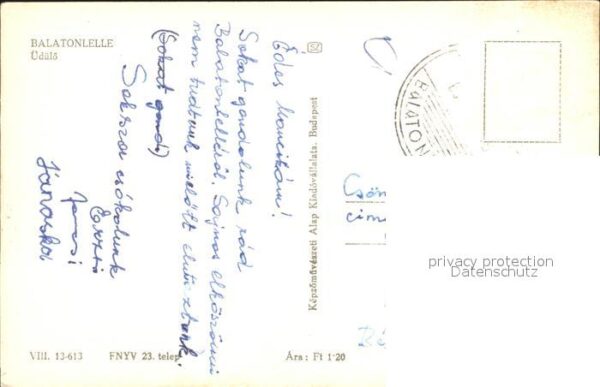 BALATONLELLE
Üdülő
Édes Mancikám!
Sokat gondolunk rád
Balatonlelléről. Sajnos elköszönni
nem tudtunk mielőtt elutaztunk.
(Sokat gond)
Sokszor csókolunk
Erzsi
Jancsi
Jánoska
Képzőművészeti Alap Kiadóvállalata, Budapest
BALATON
privacy protection
Datenschutz
VIII. 13-613
FNYV 23. telep
Ára: Ft 1·20